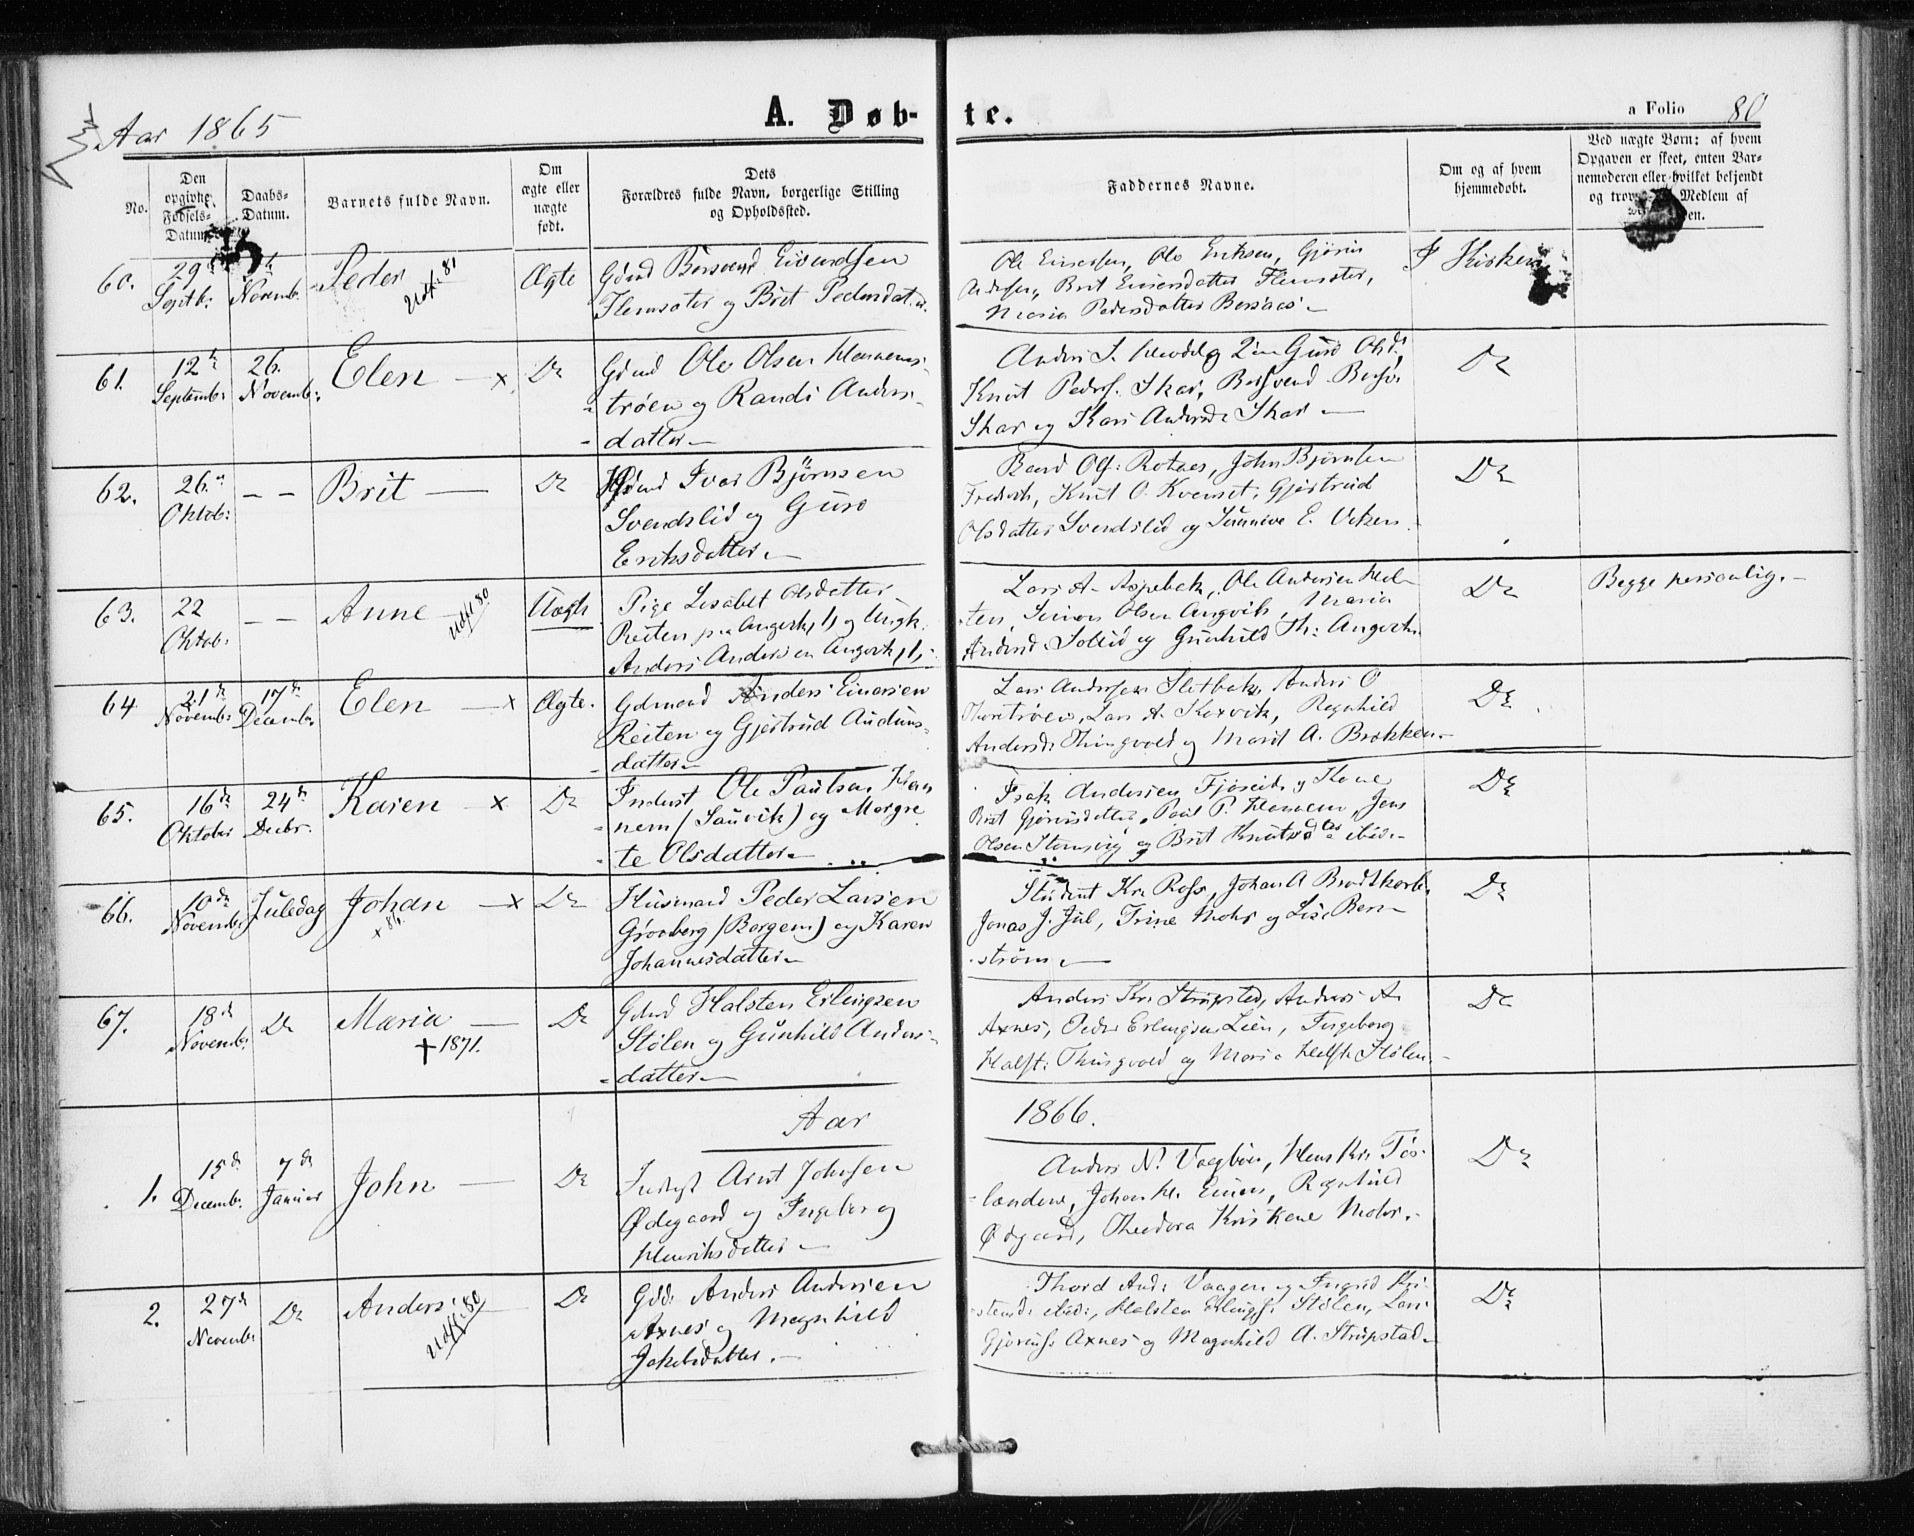 Aar 1865
A. Døb-
te.
a Folio 80
No.
Den opgivne Fødsels-Datum.
Daabs-Datum.
Barnets fulde Navn.
Om ægte eller nægte født.
Dets
Forældres fulde Navn, borgerlige Stilling
og Opholdssted.
Faddernes Navne.
Om og af hvem
hjemmedøbt.
Ved nægte Børn: af hvem
Opgaven er skeet, enten Bar-
nemoderen eller hvilket bekjendt
og Medlem af
60.
29
Septb:
Novemb:
Peder
Udfl. 81
Ægte
Eivendsen
Flemsæter og Brit Pedersdat
Ole Einersen, Ole Eriksen, Gjørin
Andersen, Brit Einersdatter Flemsæter,
Maria Pedersdatter
I Kirken
61.
12te
Septemb:
26.
Novemb:
Elen x
Do
Gdmd Ole Olsen
trøen og Randi Anders-
datter
Knut Peders. Skar,
Skar og Kari Andersd. Skar
Do
62.
26.
Oktob:
- -
Brit
Do
Ivar Bjørnsen
Svendslid og Guro
Eriksdatter
Baard Ols: Rotnes, John Bjørnsen
Knut O. Kvenset, Gjertrud
Olsdatter Svendslid og E.
Do
63.
22
Oktob:
- -
Anne
Udfl 80
Uægte
Pige Lisabet Olsdatter
Reiten pa Angvik, og Ungk.
Anders Andersen Angvik
Lars A. Aspebak, Ole Andersen
Olsen Angvik, Maria
Andersd. Sollid og Gunhild Th: Angvik
Do
Begge personlig.
64
21de
Novemb:
17de
Decemb:
Elen x
Ægte.
Gdmand Anders Einersen
Reiten og Gjertrud Auduns-
datter
Lars Andersen Sletbak, Anders O
Lars A. Koxvik, Ragnhild
Andersd. Thingvold og Marit A. Brekken
Do
65.
16de
Oktober
24de
Decbr.
Karen x
Do
Inderst Ole Paulsen
nem (Sauvik) og Margre
te Olsdatter
Isak Andersen Fjøseide og Kone
Brit Gjørinsdatter, Paul P. Hanem, Jens
Olsen og Brit Knutsdtr ibid.
Do
66.
10de
Novemb:
Juledag
Johan x
x 86.
Do
Husmand Peder Larsen
Groaberg (Borgen) og Karen
Johannesdatter
Student Kr. Ross, Johan A Brodtkorb,
Jonas J. Jul, Trine Mohr og Lise Bern
strøm
Do
67.
18de
Novemb:
Do
Maria
† 1871.
Do
Gdmd Halsten Erlingsen
Stølen og Gunhild Anders-
datter
Anders Kr. Strupstad, Anders A.
Axnes, Peder Erlingsen Lien, Ingeborg
Halst: Thingvold og Mari Halst. Stølen
Do
Aar
1866.
1.
15de
Decemb:
7de
Januar
John
Do
Inderst Arnt Johnsen
Ødegaard og Ingeborg
Henriksdatter
Anders N. Vaagbøen, Hans Kr. Tøs-
Johan H. Einen, Ragnhild
Ødgaard, Theodora Kristiane Mohr.
Do
2.
27de
Novemb:
Do
Anders
Udfl. 80
Do
Gdb. Anders Andersen
Axnes og Magnhild
Jakobsdatter.
Thord And: Vaagen og Ingrid Kri-
stensd: ibid:, Halsten Erlings: Stølen, Lars
Gjørins: Axnes og Magnhild A. Strupstad
Do